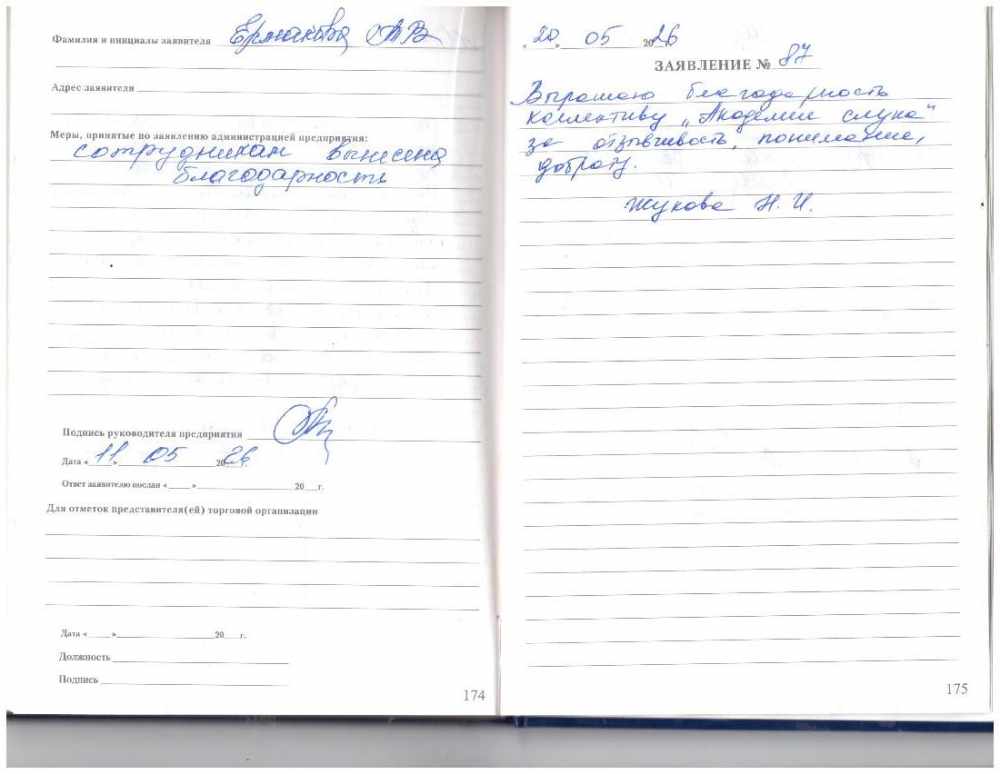 Фамилия и инициалы заявителя Ермакова А В
Адрес заявителя
Меры, принятые по заявлению администрацией предприятия:
сотрудникам вынесена
благодарность
Подпись руководителя предприятия
Дата « 11 » 05 2026 г.
Ответ заявителю послан « » 20 г.
Для отметок представителя(ей) торговой организации
Дата « » 20 г.
Должность
Подпись
174
« 20 » 05 2026
ЗАЯВЛЕНИЕ № 87
Выражаю благодарность
коллективу „Академии слуха"
за отзывчивость, понимание,
доброту.
Жукова Н. И.
175